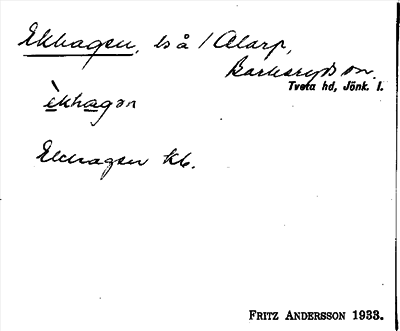 Ekhagen, ls å / Alarp,
Barkeryds sn.
Tveta hd, Jönk. l.
èkhagən
Ekhagen Kb.
FRITZ ANDERSSON 1933.